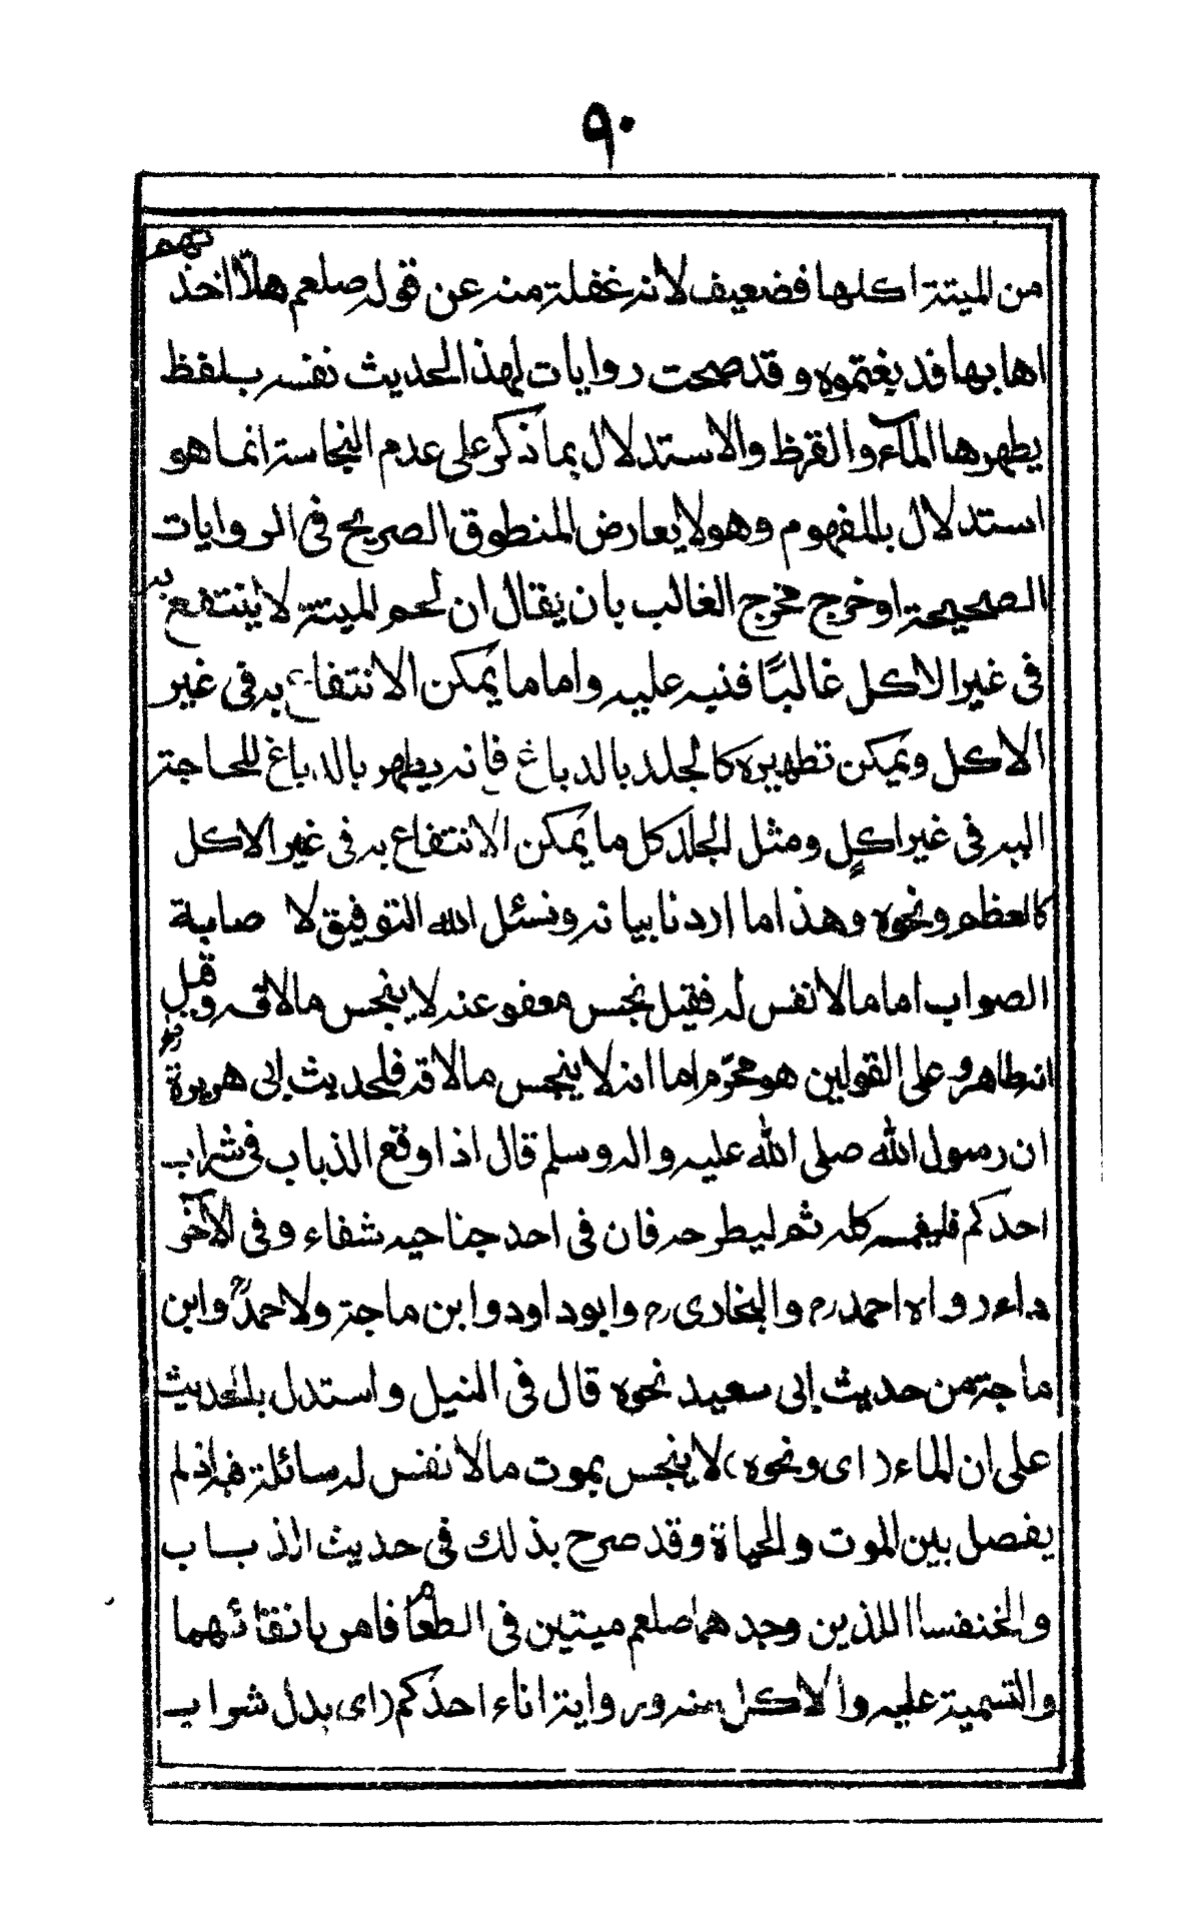 ٩٠
من الميتة اكلها فضعيف لانه غفلة منه عن قوله صلعم هلّا اخذتم
اهابها فدبغتموه وقد صحت روايات لهذا الحديث نفسه بلفظ
يطهرها المآء والقرظ والاستدلال بما ذكر على عدم النجاسة انما هو
استدلال بالمفهوم وهو لا يعارض المنطوق الصريح فى الروايات
الصحيحة او خرج مخرج الغالب بان يقال ان لحم الميتة لا ينتفع به
فى غير الاكل غالبًا فنبه عليه واما ما يمكن الانتفاع به فى غير
الاكل ويمكن تطهيره كالجلد بالدباغ فانه يطهر بالدباغ للحاجة
اليه فى غير اكلٍ ومثل الجلد كل ما يمكن الانتفاع به فى غير الاكل
كالعظم ونحوه وهذا ما اردنا بيانه ونسئل الله التوفيق لا صابة
الصواب اما ما لا نفس له فقيل نجس معفو عنه لا ينجس ما لاقه وقيل
انه طاهر وعلى القولين هو محرّم اما انه لا ينجس ما لاقه فلحديث ابى هريرة
ان رسول الله صلى الله عليه واله وسلم قال اذا وقع الذباب فى شراب
احدكم فليغمسه كله ثم ليطرحه فان فى احد جناحيه شفاء وفى الآخر
داء رواه احمد رح والبخارى رح وابوداود وابن ماجة ولاحمد رح وابن
ماجة من حديث ابى سعيد نحوه قال فى النيل واستدل بالحديث
على ان الماء (اى ونحوه) لا ينجس بموت ما لا نفس له سائلة فيه اذ لم
يفصل بين الموت والحياة وقد صرح بذلك فى حديث الذباب
والخنفسا اللذين وجدهما صلعم ميتين فى الطعام فامر بانقائهما
والتسمية عليه والاكل منه ورواية اناء احدكم (اى بدل شراب